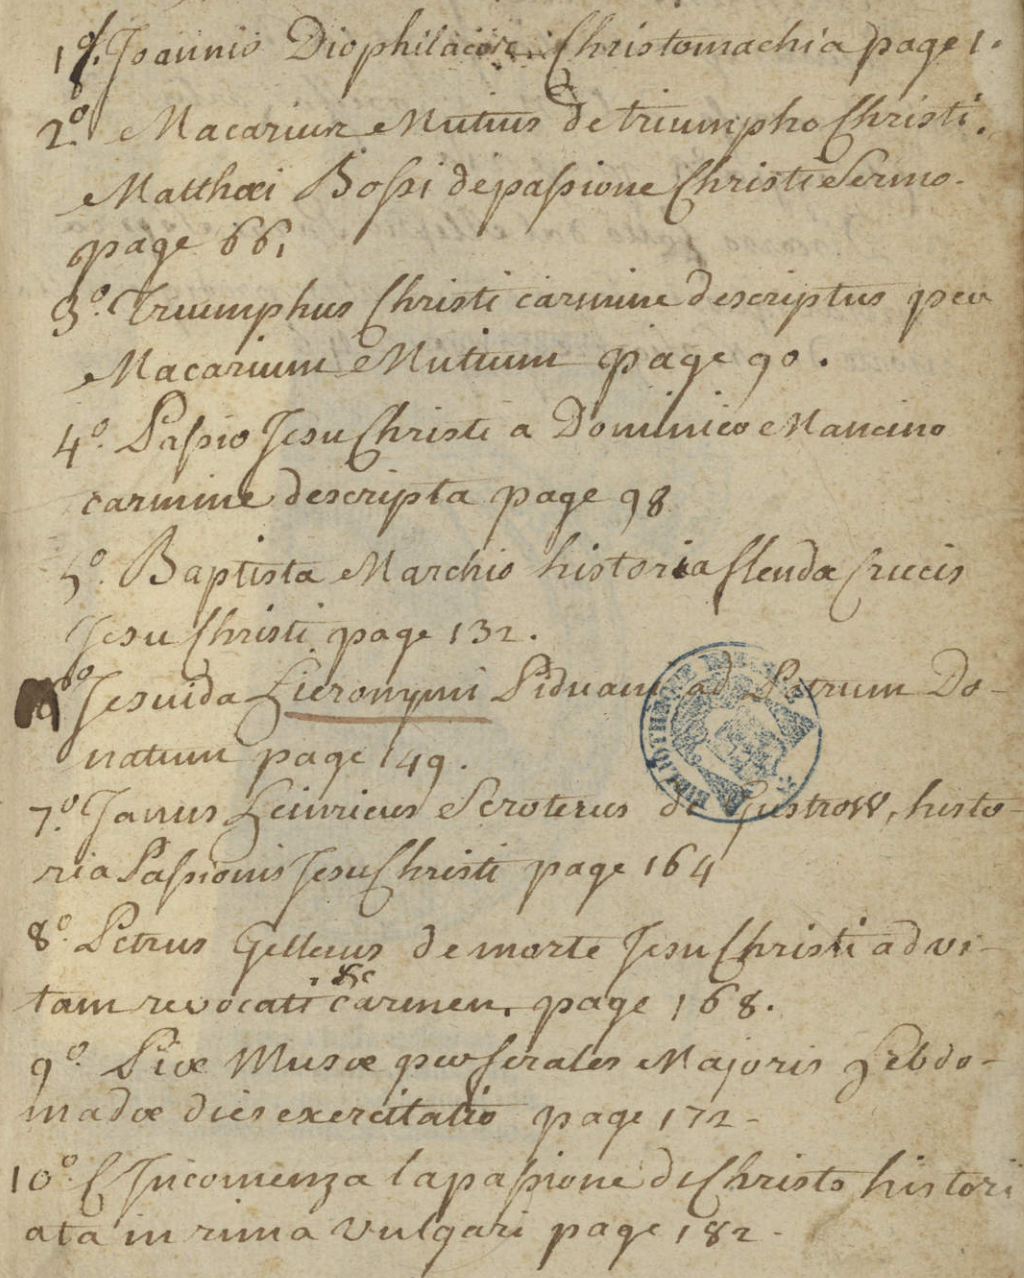 1º. Joannis Diophilacis Christomachia page 1.
2º. Macarius Mutius de triumpho Christi.
Matthæi Bossi de passione Christi Sermo.
page 66.
3º. Triumphus Christi carmine descriptus per
Macarium Mutium page 90.
4º. Passio Jesu Christi a Dominico Mancino
carmine descripta page 98
5º. Baptista Marchio historia flenda Crucis
Jesu Christi page 132.
6º Jesuida Hieronymi Paduani ad Petrum Do-
natum page 149.
7º. Janus Heinricus Scroterus de Gustrow, histo-
ria Passionis Jesu Christi page 164
8º. Petrus Gellerus de morte Jesu Christi ad vi-
tam revocati &c carmen. page 168.
9º. Piæ Musæ per ferales Majoris Hebdo-
madæ dies exercitatio page 172-
10º. Incomenza la passione de Christo histori
ata in rima vulgari page 182-
BIBLIOTHEQUE